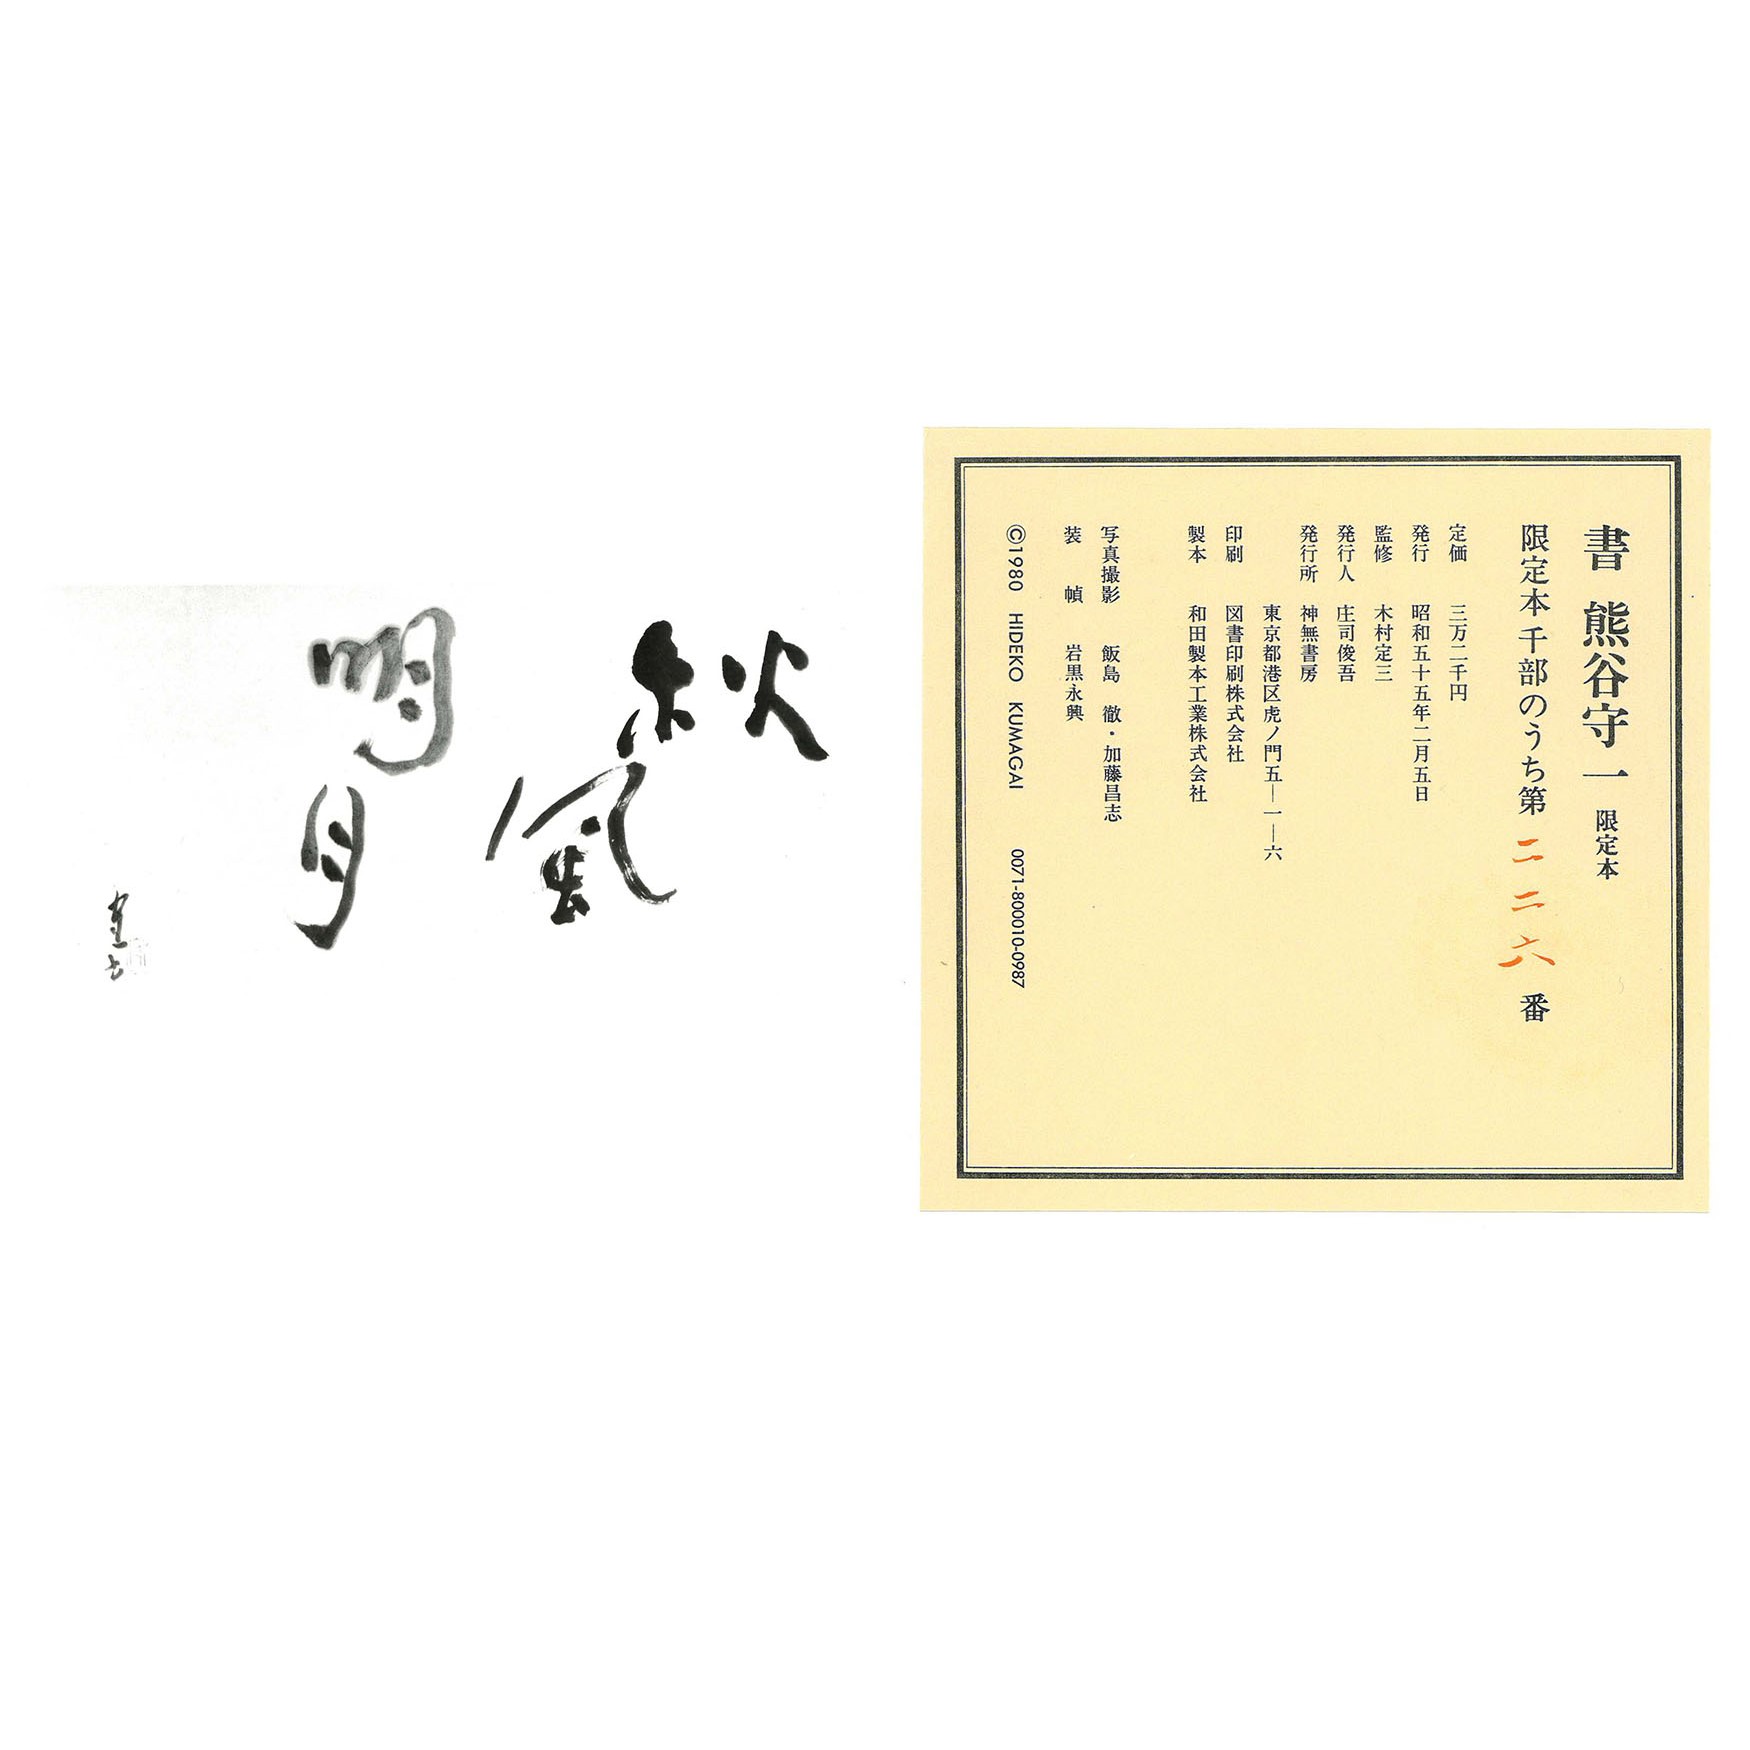 秋風
明月
書 熊谷守一 限定本
限定本千部のうち第二二六番
定価 三万二千円
発行 昭和五十五年二月五日
監修 木村定三
発行人 庄司俊吾
発行所 神無書房
東京都港区虎ノ門五―一―六
印刷 図書印刷株式会社
製本 和田製本工業株式会社
写真撮影 飯島 徹・加藤昌志
装幀 岩黒永興
©1980 HIDEKO KUMAGAI 0071-800010-0987